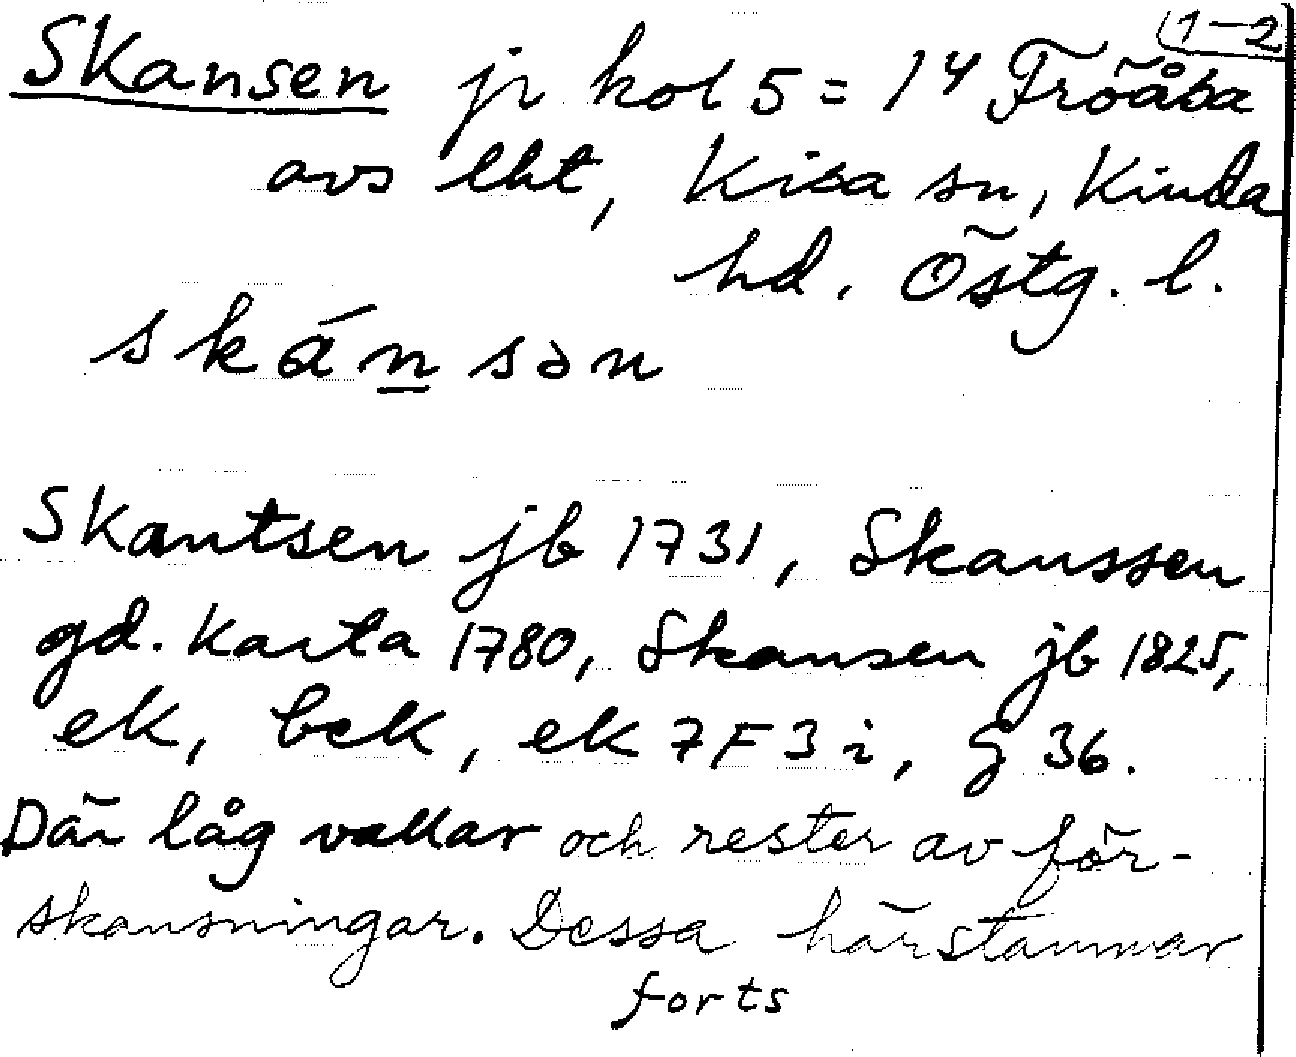 (1-2
Skansen jr kol 5 = 14 Fröåsa
avs lht, Kisa sn, Kinda
hd. Östg. l.
skánsən
Skantsen jb 1731, Skanssen
gd. karta 1780, Skansen jb 1825,
ek, bek, ek 7F3i, G 36.
Där låg vallar och rester av för-
skansningar. Dessa härstammar
forts